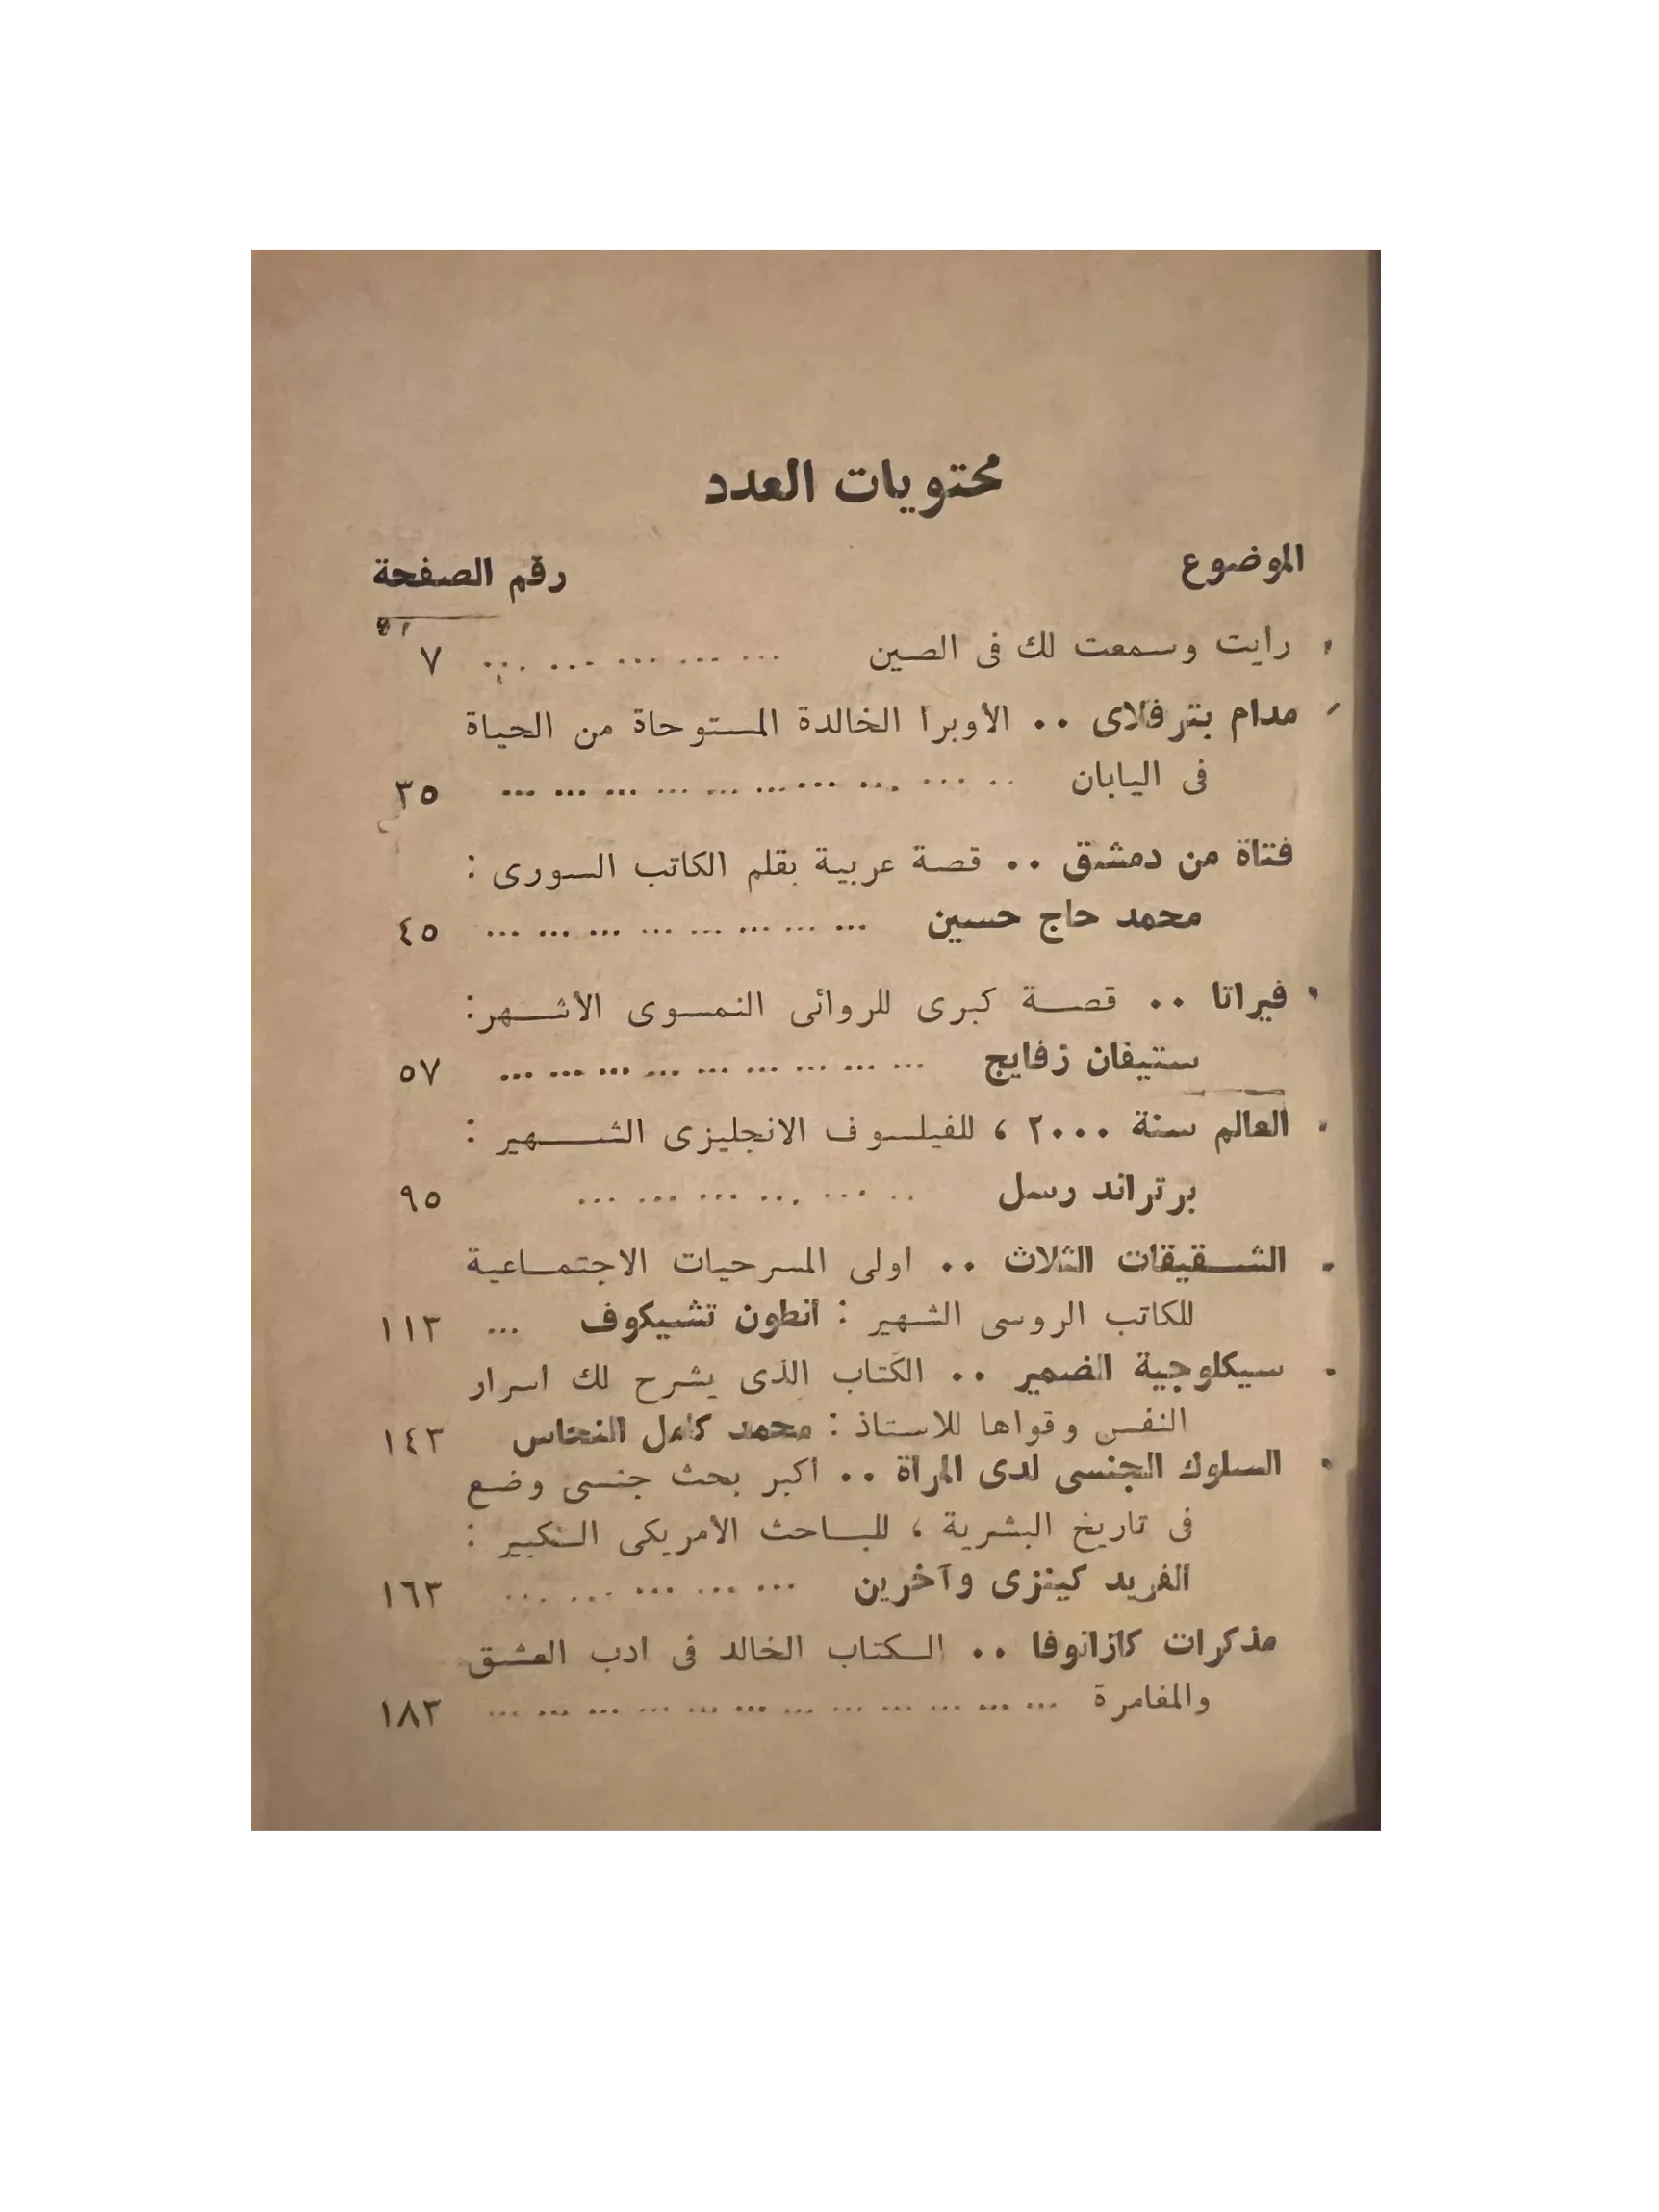 محتويات العدد
الموضوع رقم الصفحة
رايت وسمعت لك فى الصين ... ... ... ... ... ٧
مدام بترفلاى .. الأوبرا الخالدة المستوحاة من الحياة
فى اليابان .. ... ... ... ... ... ... ... ... ... ٣٥
فتاة من دمشق .. قصة عربية بقلم الكاتب السورى :
محمد حاج حسين ... ... ... ... ... ... ... ... ٤٥
فيراتا .. قصة كبرى للروائى النمسوى الأشهر:
ستيفان زفايج ... ... ... ... ... ... ... ... ... ٥٧
العالم سنة ٢٠٠٠ ، للفيلسوف الانجليزى الشهير :
برتراند رسل .. ... ... ... ... ... ٩٥
الشقيقات الثلاث .. اولى المسرحيات الاجتماعية
للكاتب الروسى الشهير : أنطون تشيكوف ... ١١٣
سيكلوجية الضمير .. الكتاب الذى يشرح لك اسرار
النفس وقواها للاستاذ : محمد كامل النحاس ١٤٣
السلوك الجنسى لدى المرأة .. اكبر بحث جنسى وضع
فى تاريخ البشرية ، للباحث الأمريكى الكبير :
الفريد كينزى وآخرين ... ... ... ... ... ١٦٣
مذكرات كازانوفا .. الكتاب الخالد فى ادب العشق
والمغامرة ... ... ... ... ... ... ... ... ... ... ... ... ١٨٣